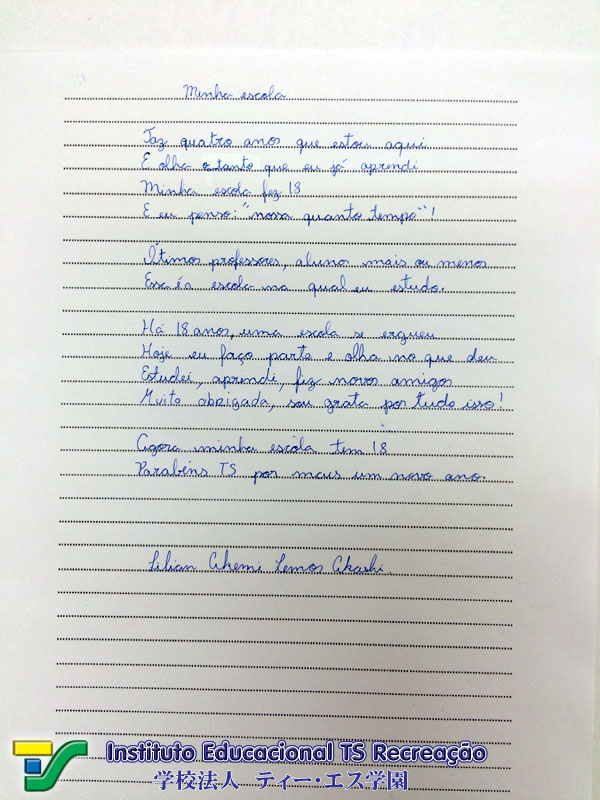 Minha escola
Faz quatro anos que estou aqui
E olha o tanto que eu já aprendi
Minha escola fez 18
E eu penso: "nossa quanto tempo"!
Ótimos professores, alunos mais ou menos
Essa é a escola na qual eu estudo.
Há 18 anos, uma escola se ergueu
Hoje eu faço parte e olha no que deu
Estudei, aprendi, fiz novos amigos
Muito obrigada, sou grata por tudo isso!
Agora minha escola tem 18
Parabéns TS por mais um novo ano.
Lilian Akemi Lemos Akashi
Instituto Educacional TS Recreação
学校法人 ティー・エス学園